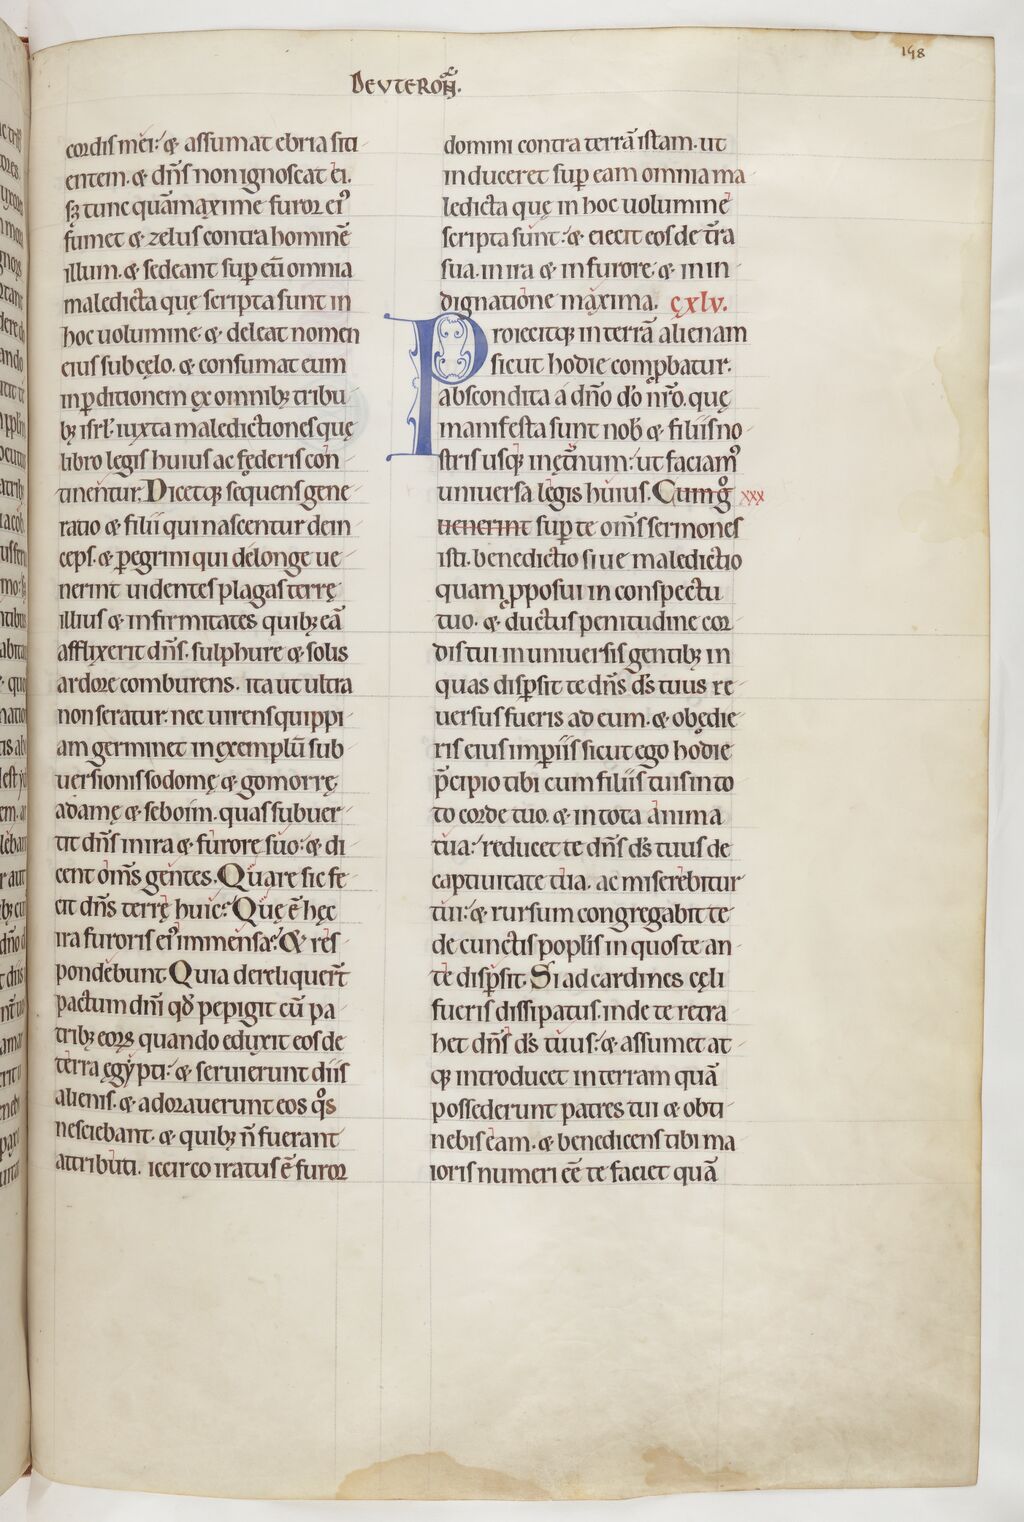 198
Deuteroñ.
cordis mei: & assumat ebria siti
entem. & dñs non ignoscat ei.
sꝫ tunc quãmaxime furor eiꝰ
fumet & zelus contra hominẽ
illum. & sedeant suꝑ eũ omnia
maledicta quę scripta sunt in
hoc uolumine. & deleat nomen
eius sub cęlo. & consumat eum
in ꝑditionem ex omnibꝫ tribu
bꝫ isrł. iuxta maledictiones quę
libro legis huius ac fęderis con
tinentur. Dicetqꝫ sequens gene
ratio & filii qui nascentur dein
ceps. & ꝑegrini qui de longe ue
nerint uidentes plagas terrę
illius & infirmitates quibꝫ eã
afflixerit dñs. sulphure & solis
ardore comburens. ita ut ultra
non seratur. nec uirens quippi
am germinet in exemplũ sub
uersionis sodomę & gomorrę
adamę & seboim. quas subuer
tit dñs in ira & furore suo: & di
cent õms gentes. Quare sic fe
cit dñs terrę huic? Quę ẽ hęc
ira furoris eiꝰ immensa? & res
pondebunt. Quia dereliquer̃t
pactum dñi qđ pepigit cũ pa
tribꝫ eoꝝ quando eduxit eos de
terra ęgypti: & seruierunt diis
alienis. & adorauerunt eos qͦs
nesciebant. & quibꝫ ñ fuerant
attributi. iccirco iratus ẽ furor
domini contra terrã istam. ut
induceret suꝑ eam omnia ma
ledicta quę in hoc uolumine
scripta sunt: & eiecit eos de t̃ra
sua. in ira & in furore. & in in
dignatione maxima. cxlv.
Proiecitqꝫ in terrã alienam
sicut hodie comꝓbatur.
abscondita a dño do nr̃o. quę
manifesta sunt nob̃ & filiis no
stris usqꝫ in ęt̃num: ut faciamꝰ
uniuersa legis huius. Cum gͦ xxx
uenerint suꝑ te om̃s sermones
isti. benedictio siue maledictio
quam ꝓposui in conspectu
tuo. & ductus penitudine cor
dis tui in uniuersis gentibꝫ in
quas disꝑsit te dñs ds̃ tuus re
uersus fueris ad eum. & obędie
ris eius imꝑiis sicut ego hodie
p̃cipio tibi cum filiis tuis in to
to corde tuo. & in tota anima
tua: reducet te dñs ds̃ tuus de
captiuitate tua. ac miserebitur
tui: & rursum congregabit te
de cunctis poplis in quos te an
te disꝑsit. Si ad cardines cęli
fueris dissipatus. inde te retra
het dñs ds̃ tuus: & assumet at
qꝫ introducet in terram quã
possederunt patres tui & obti
nebis eam. & benedicens tibi ma
ioris numeri eẽ te faciet quã